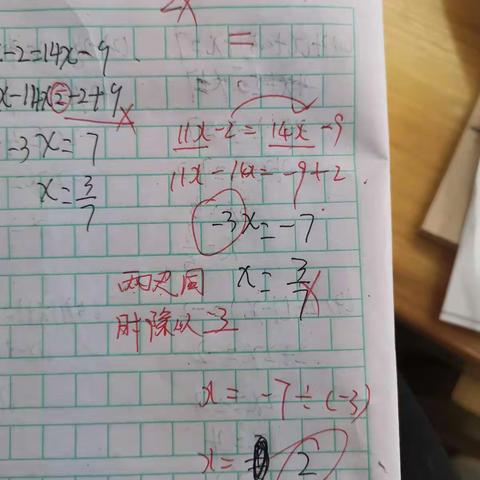 2x
-2=14x-9
x-14x=-2+9
-3x=7
x=3/7
11x-2=14x-9
11x-14x=-9+2
-3x=-7
x=3/7
两边同
时除以-3
x=-7÷(-3)
x=